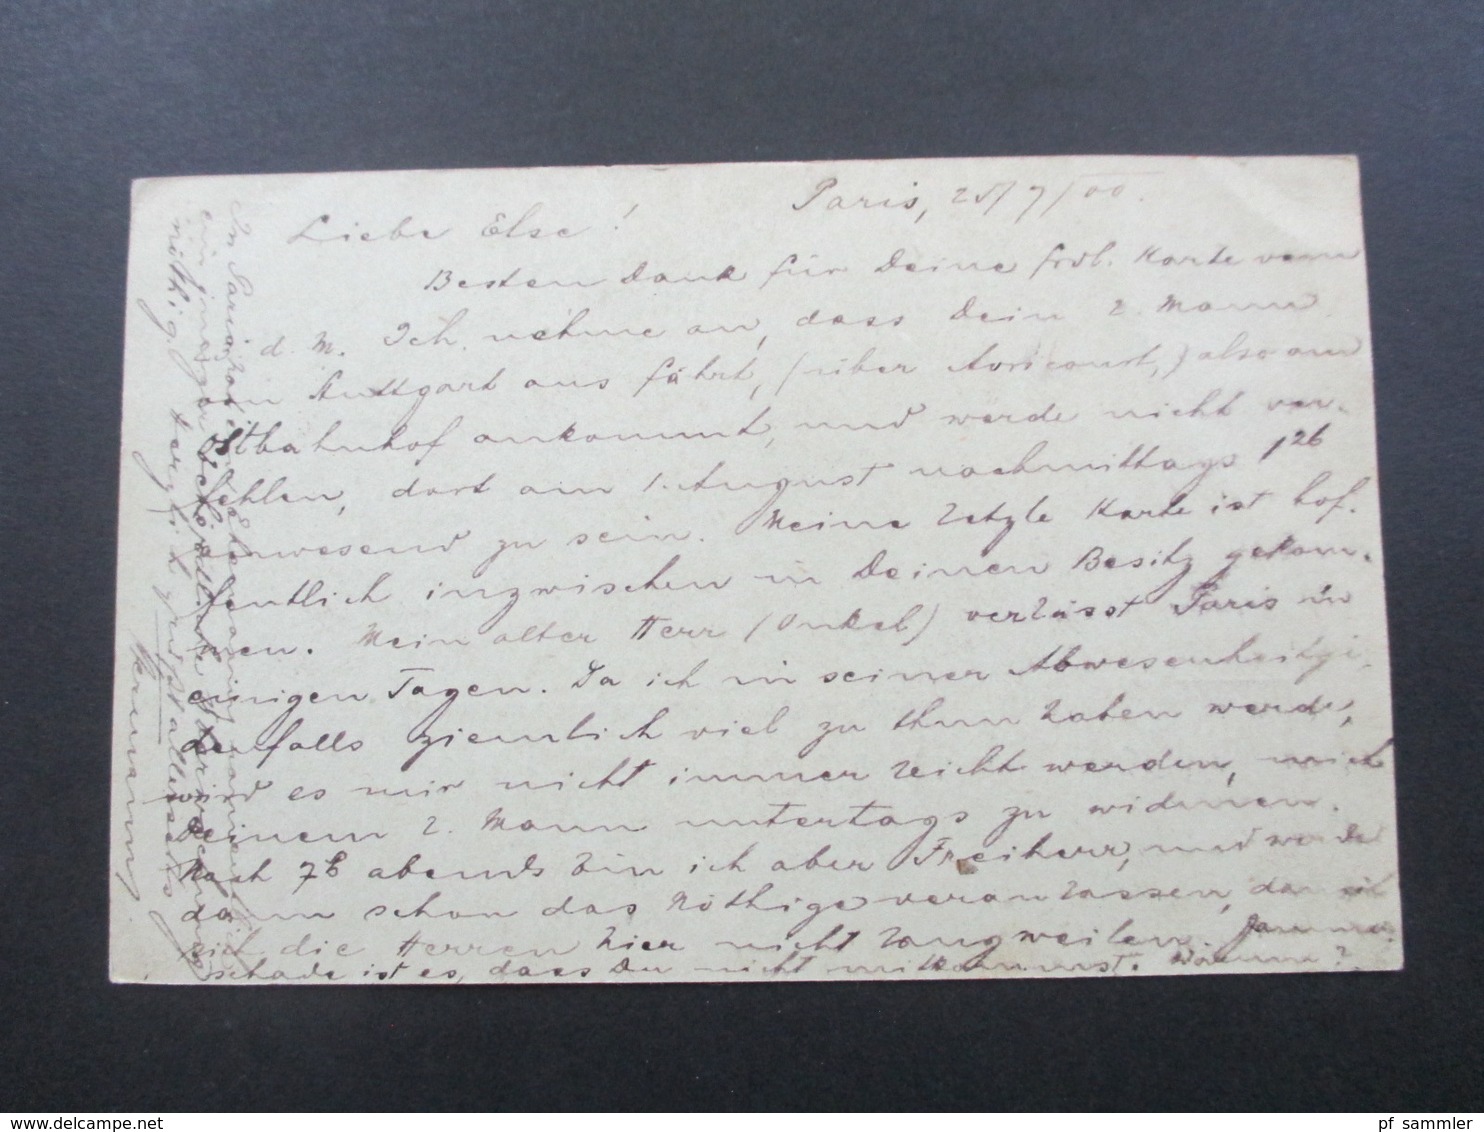 Paris, 25/7/00.
Liebe Else!
Besten Dank für Deine frdl. Karte vom
d. M. Ich nehme an, dass Dein 2. Mann
von Stuttgart aus fährt, (über Avricourt,) also am
Ostbahnhof ankommt, und werde nicht ver-
fehlen, dort am 1. August nachmittags 1 26
anwesend zu sein. Meine letzte Karte ist hof-
fentlich inzwischen in Deinen Besitz gekom-
men. Mein alter Herr (Onkel) verlässt Paris in
einigen Tagen. Da ich in seiner Abwesenheit
denfalls ziemlich viel zu thun haben werde,
wird es mir nicht immer leicht werden, mich
Deinem 2. Mann untertags zu widmen.
Nach 7h abends bin ich aber Freiherr, und werde
dann schon das Nöthige veranlassen, damit
sich die Herren hier nicht langweilen. Jammer-
schade ist es, dass Du nicht mitkommst. Warum?
In Paris
ein junger
nöthig. Herzlich grüßt allerseits
Hermann.
pf sammler
www.delcampe.net